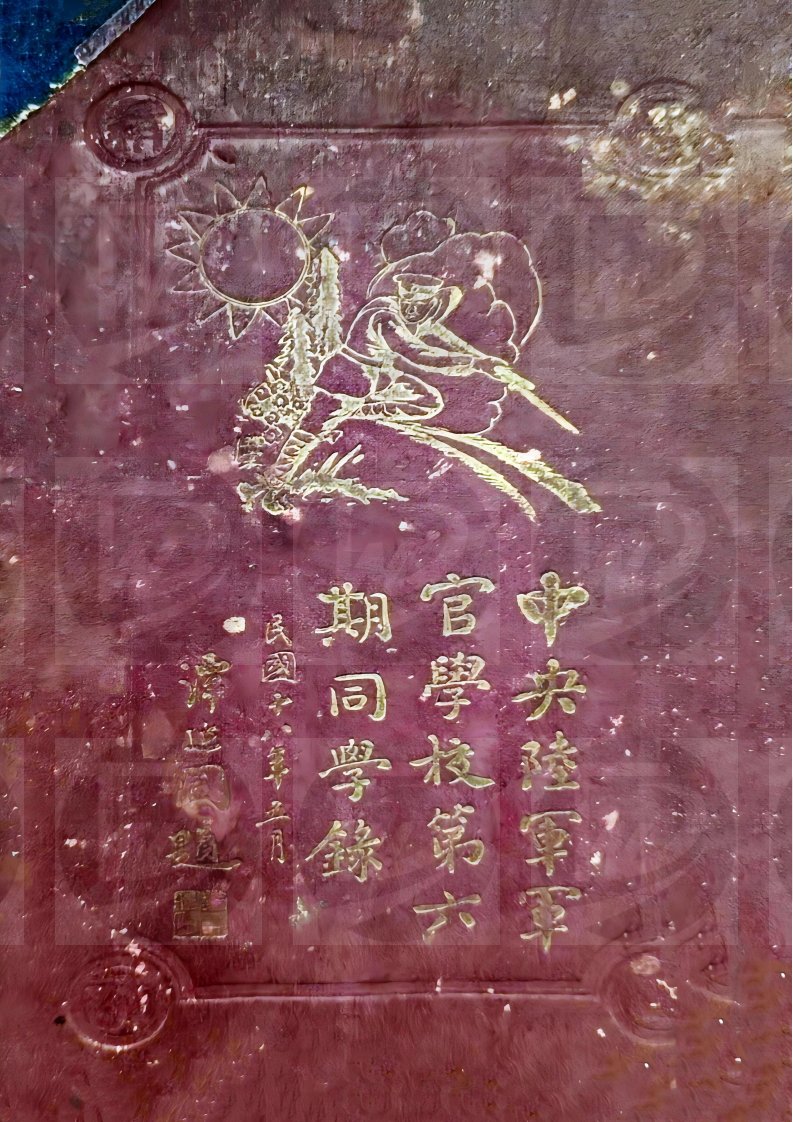 中央陸軍軍
官學校第六
期同學錄
民國十八年五月
譚延闓題